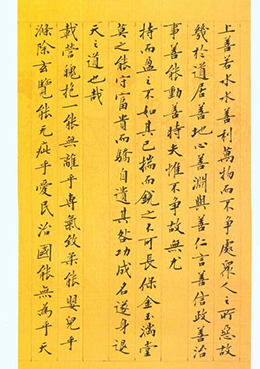 上善若水水善利萬物而不爭處衆人之所惡故
幾於道居善地心善淵與善仁言善信政善治
事善能動善時夫惟不爭故無尤
持而盈之不如其已揣而銳之不可長保金玉滿堂
莫之能守富貴而驕自遺其咎功成名遂身退
天之道也哉
載營魄抱一能無離乎專氣致柔能嬰兒乎
滌除玄覽能无疵乎愛民治國能無為乎天